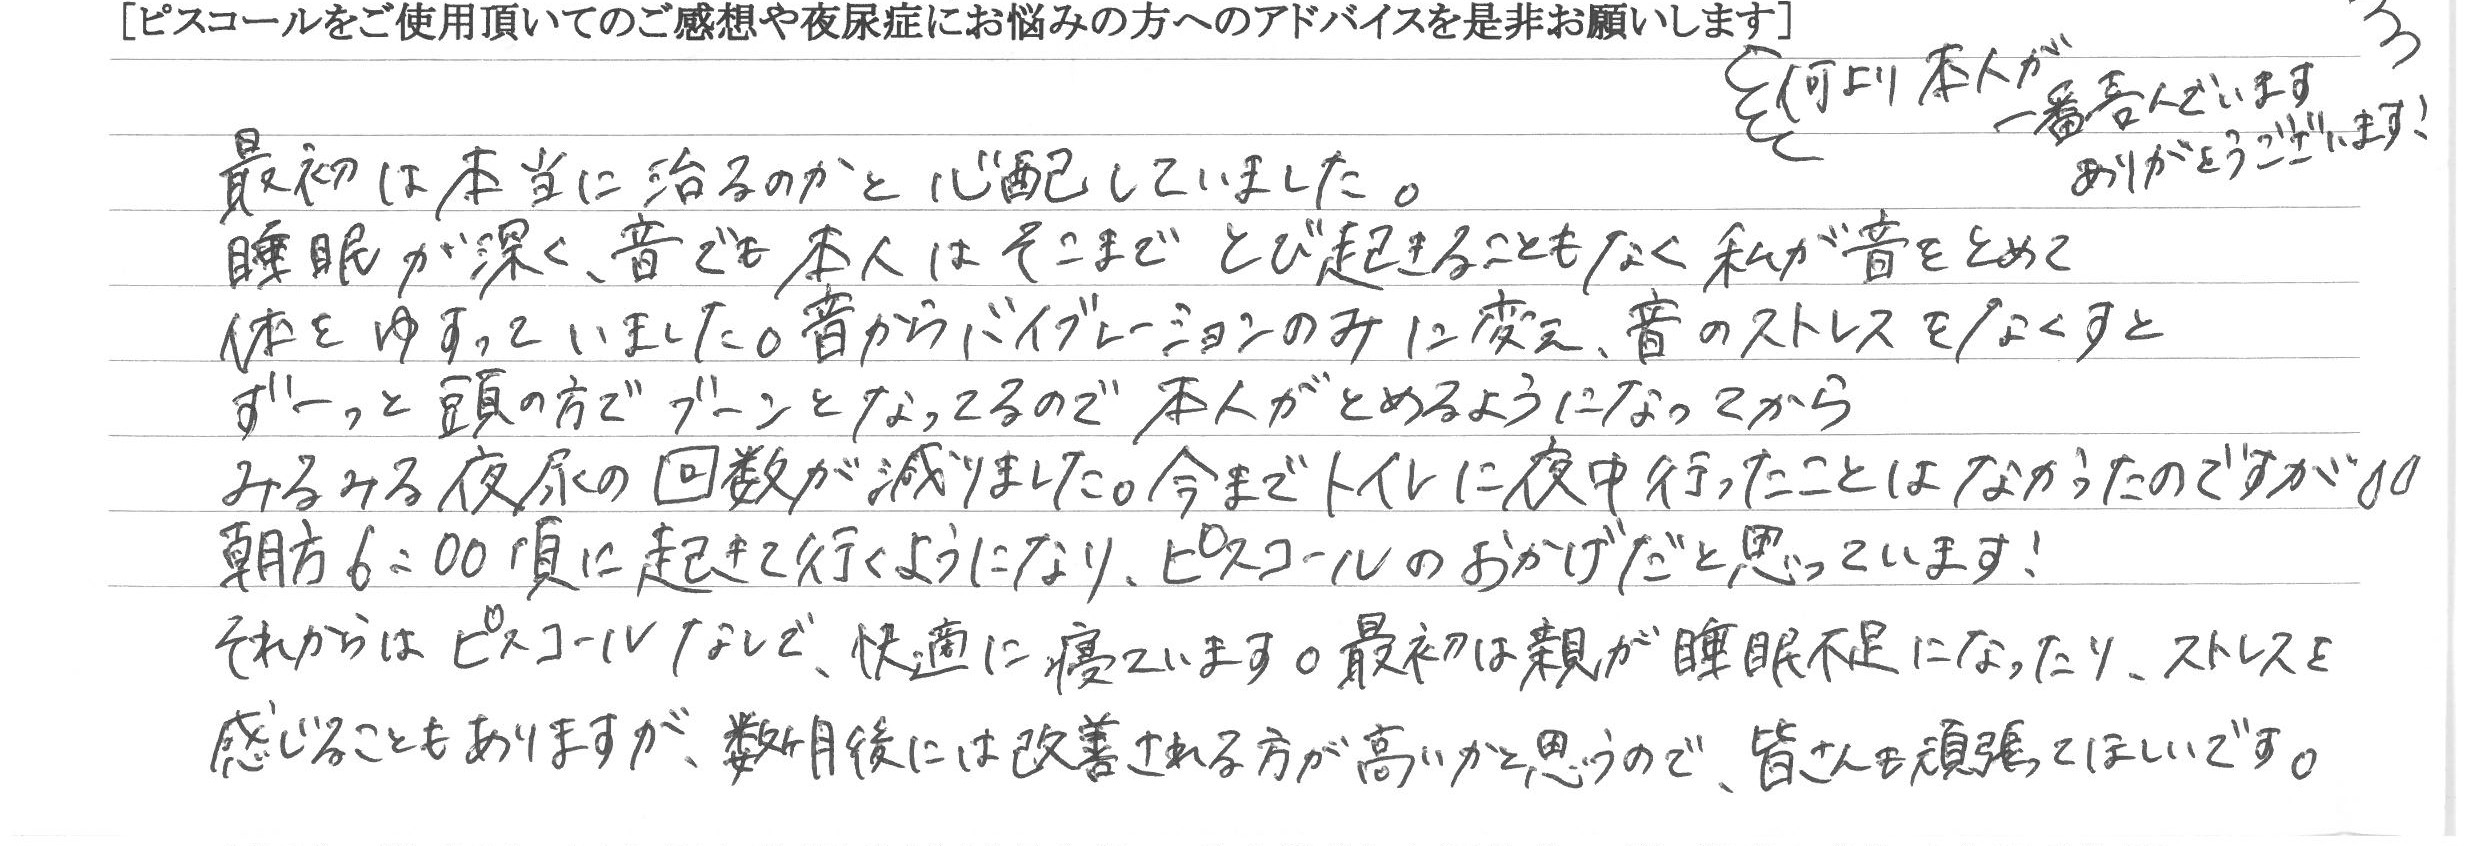 [ピスコールをご使用頂いてのご感想や夜尿症にお悩みの方へのアドバイスを是非お願いします]
何より本人が
一番喜んでいます
ありがとうございます!
最初は本当に治るのかと心配していました。
睡眠が深く、音でも本人はそこまでとび起きることもなく私が音をとめて
体をゆすっていました。音からバイブレーションのみに変え、音のストレスをなくすと
ずーっと頭の方でブーンとなってるので本人がとめるようになってから
みるみる夜尿の回数が減りました。今までトイレに夜中行ったことはなかったのですが
朝方6:00頃に起きて行くようになり、ピスコールのおかげだと思っています!
それからはピスコールなしで、快適に寝ています。最初は親が睡眠不足になったり、ストレスを
感じることもありますが、数ヶ月後には改善される方が高いかと思うので、皆さんも頑張ってほしいです。